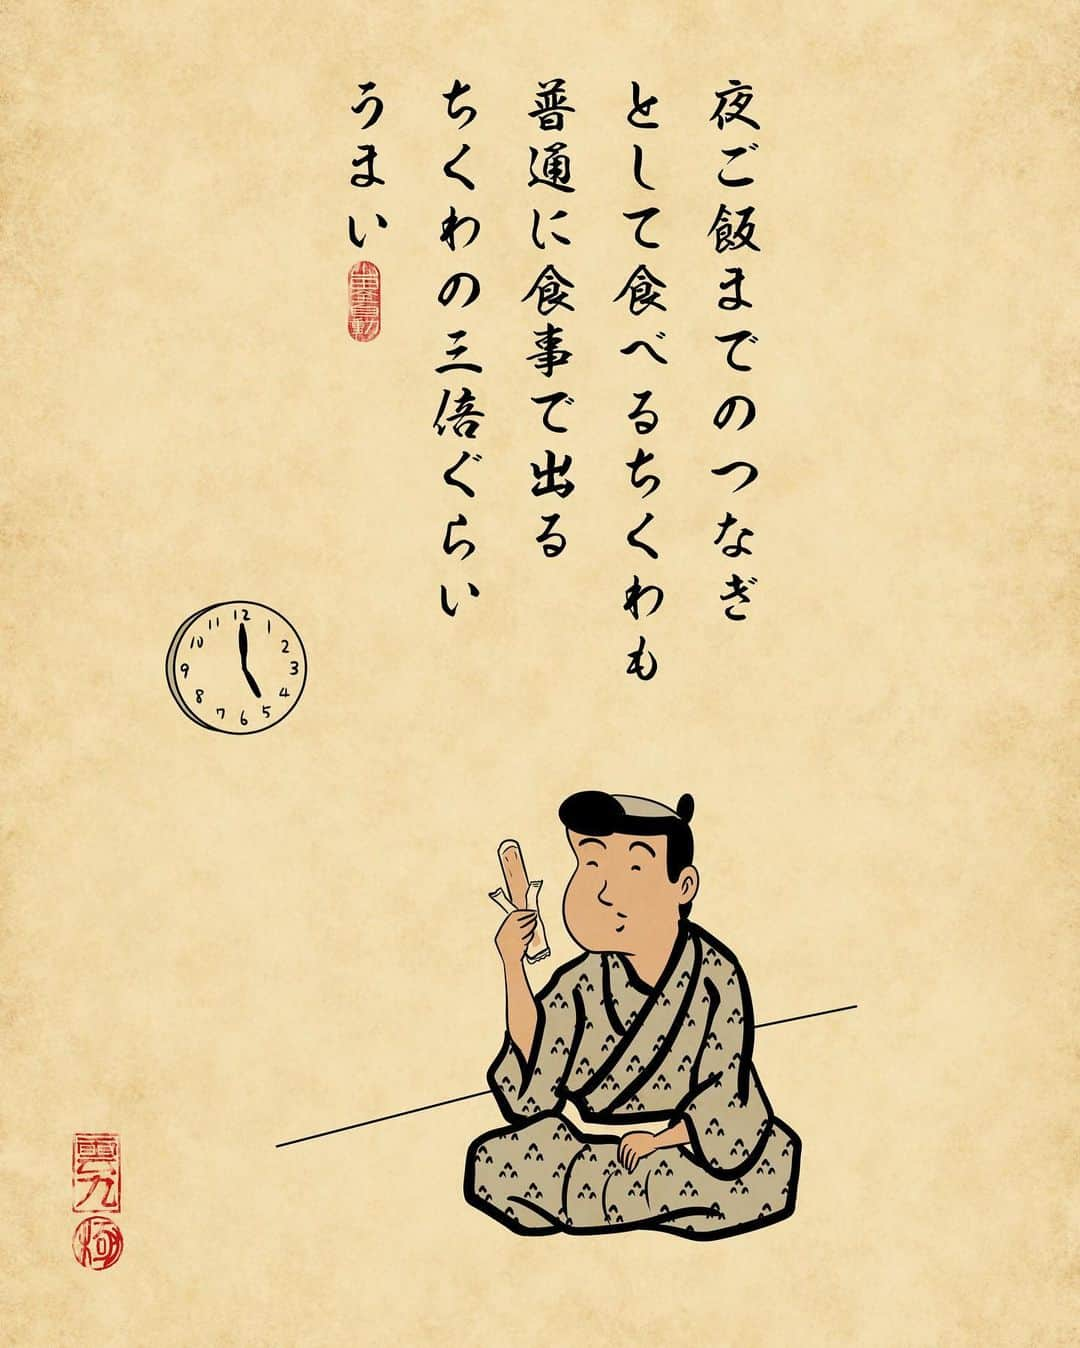 夜ご飯までのつなぎ
として食べるちくわも
普通に食事で出る
ちくわの三倍ぐらい
うまい
12
1
2
3
4
5
6
7
8
9
10
11